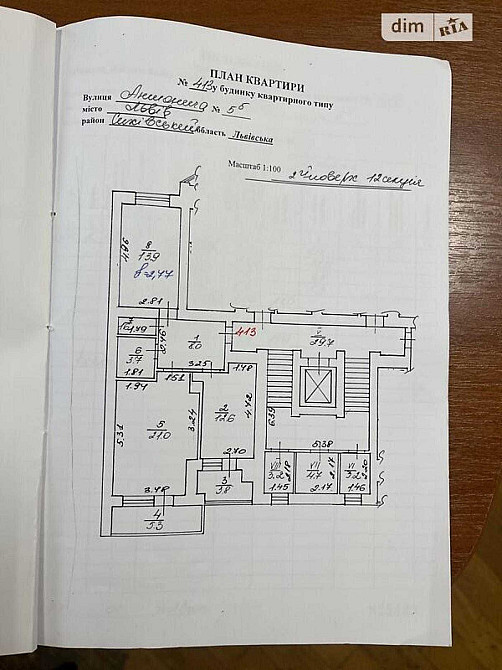 dim RIA
ПЛАН КВАРТИРИ
№ 413 у будинку квартирного типу
Вулиця Антонича № 5б
місто Львів
район Сихівський область Львівська
Масштаб 1:100
2й поверх 12 секція
8
13,9
h=2,77
4.96
2.81
7
1.49
1
8.0
2.46
3.25
413
V
29.7
6
3.7
1.81
1.94
1.52
1.48
2
12.6
4.42
2.70
3.24
5.31
5
21.0
3.78
3
3.8
4
5.3
6.35
5.38
VIII
3.2
2.18
1.45
VII
4.7
2.17
2.17
VI
3.2
2.20
1.46